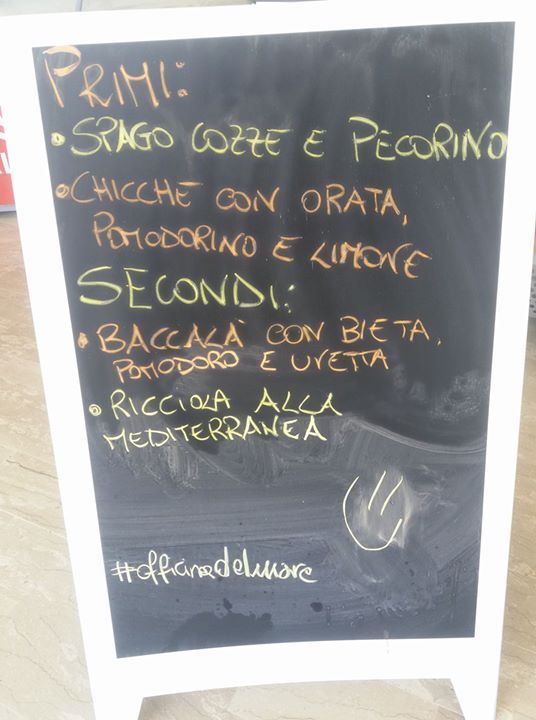 PRIMI:
• SPAGO COZZE E PECORINO
• CHICCHE CON ORATA,
POMODORINO E LIMONE
SECONDI:
• BACCALÀ CON BIETA,
POMODORO E UVETTA
• RICCIOLA ALLA
MEDITERRANEA
#officinadelmare